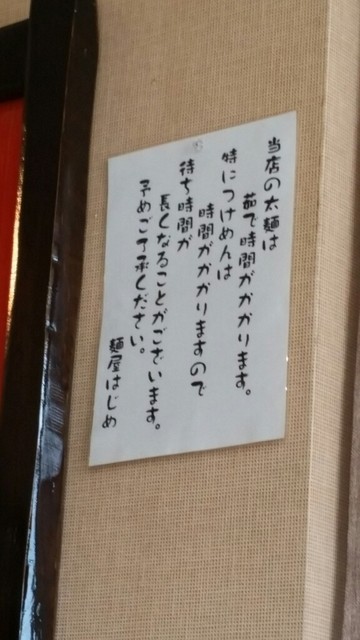 当店の太麺は
茹で時間がかかります。
特につけめんは
時間がかかりますので
待ち時間が
長くなることがございます。
予めご了承ください。
麺屋はじめ